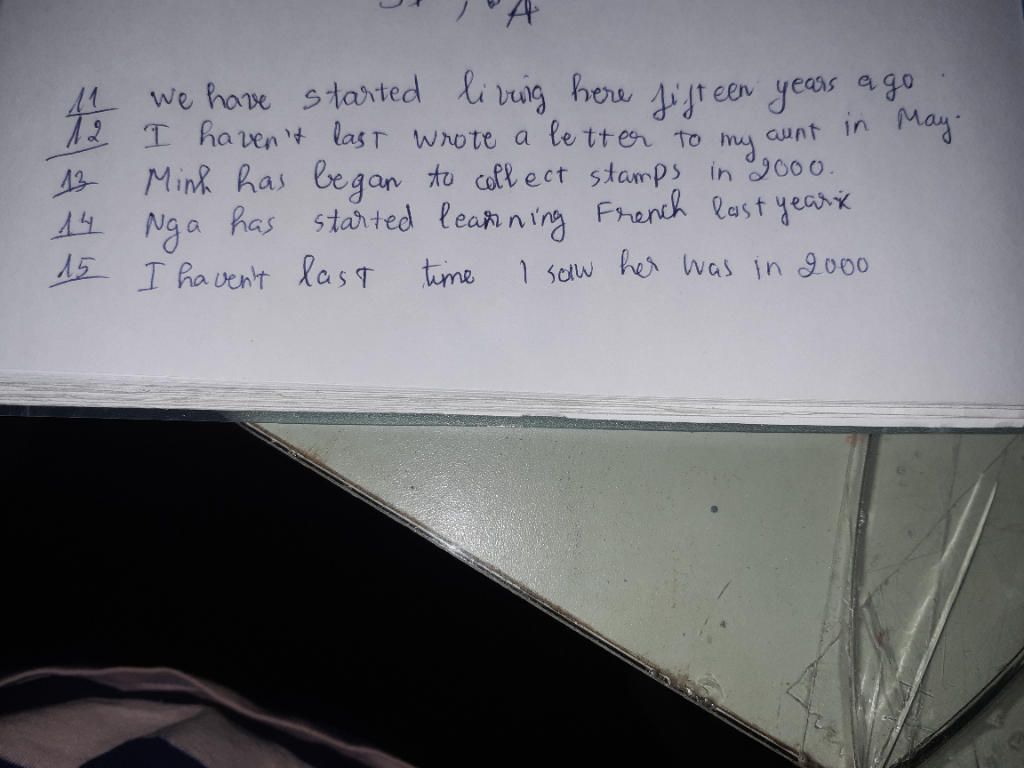 A
11 We have started living here fifteen years ago.
12 I haven't last wrote a letter to my aunt in May.
13 Minh has began to collect stamps in 2000.
14 Nga has started learning French last year
15 I haven't last time I saw her was in 2000